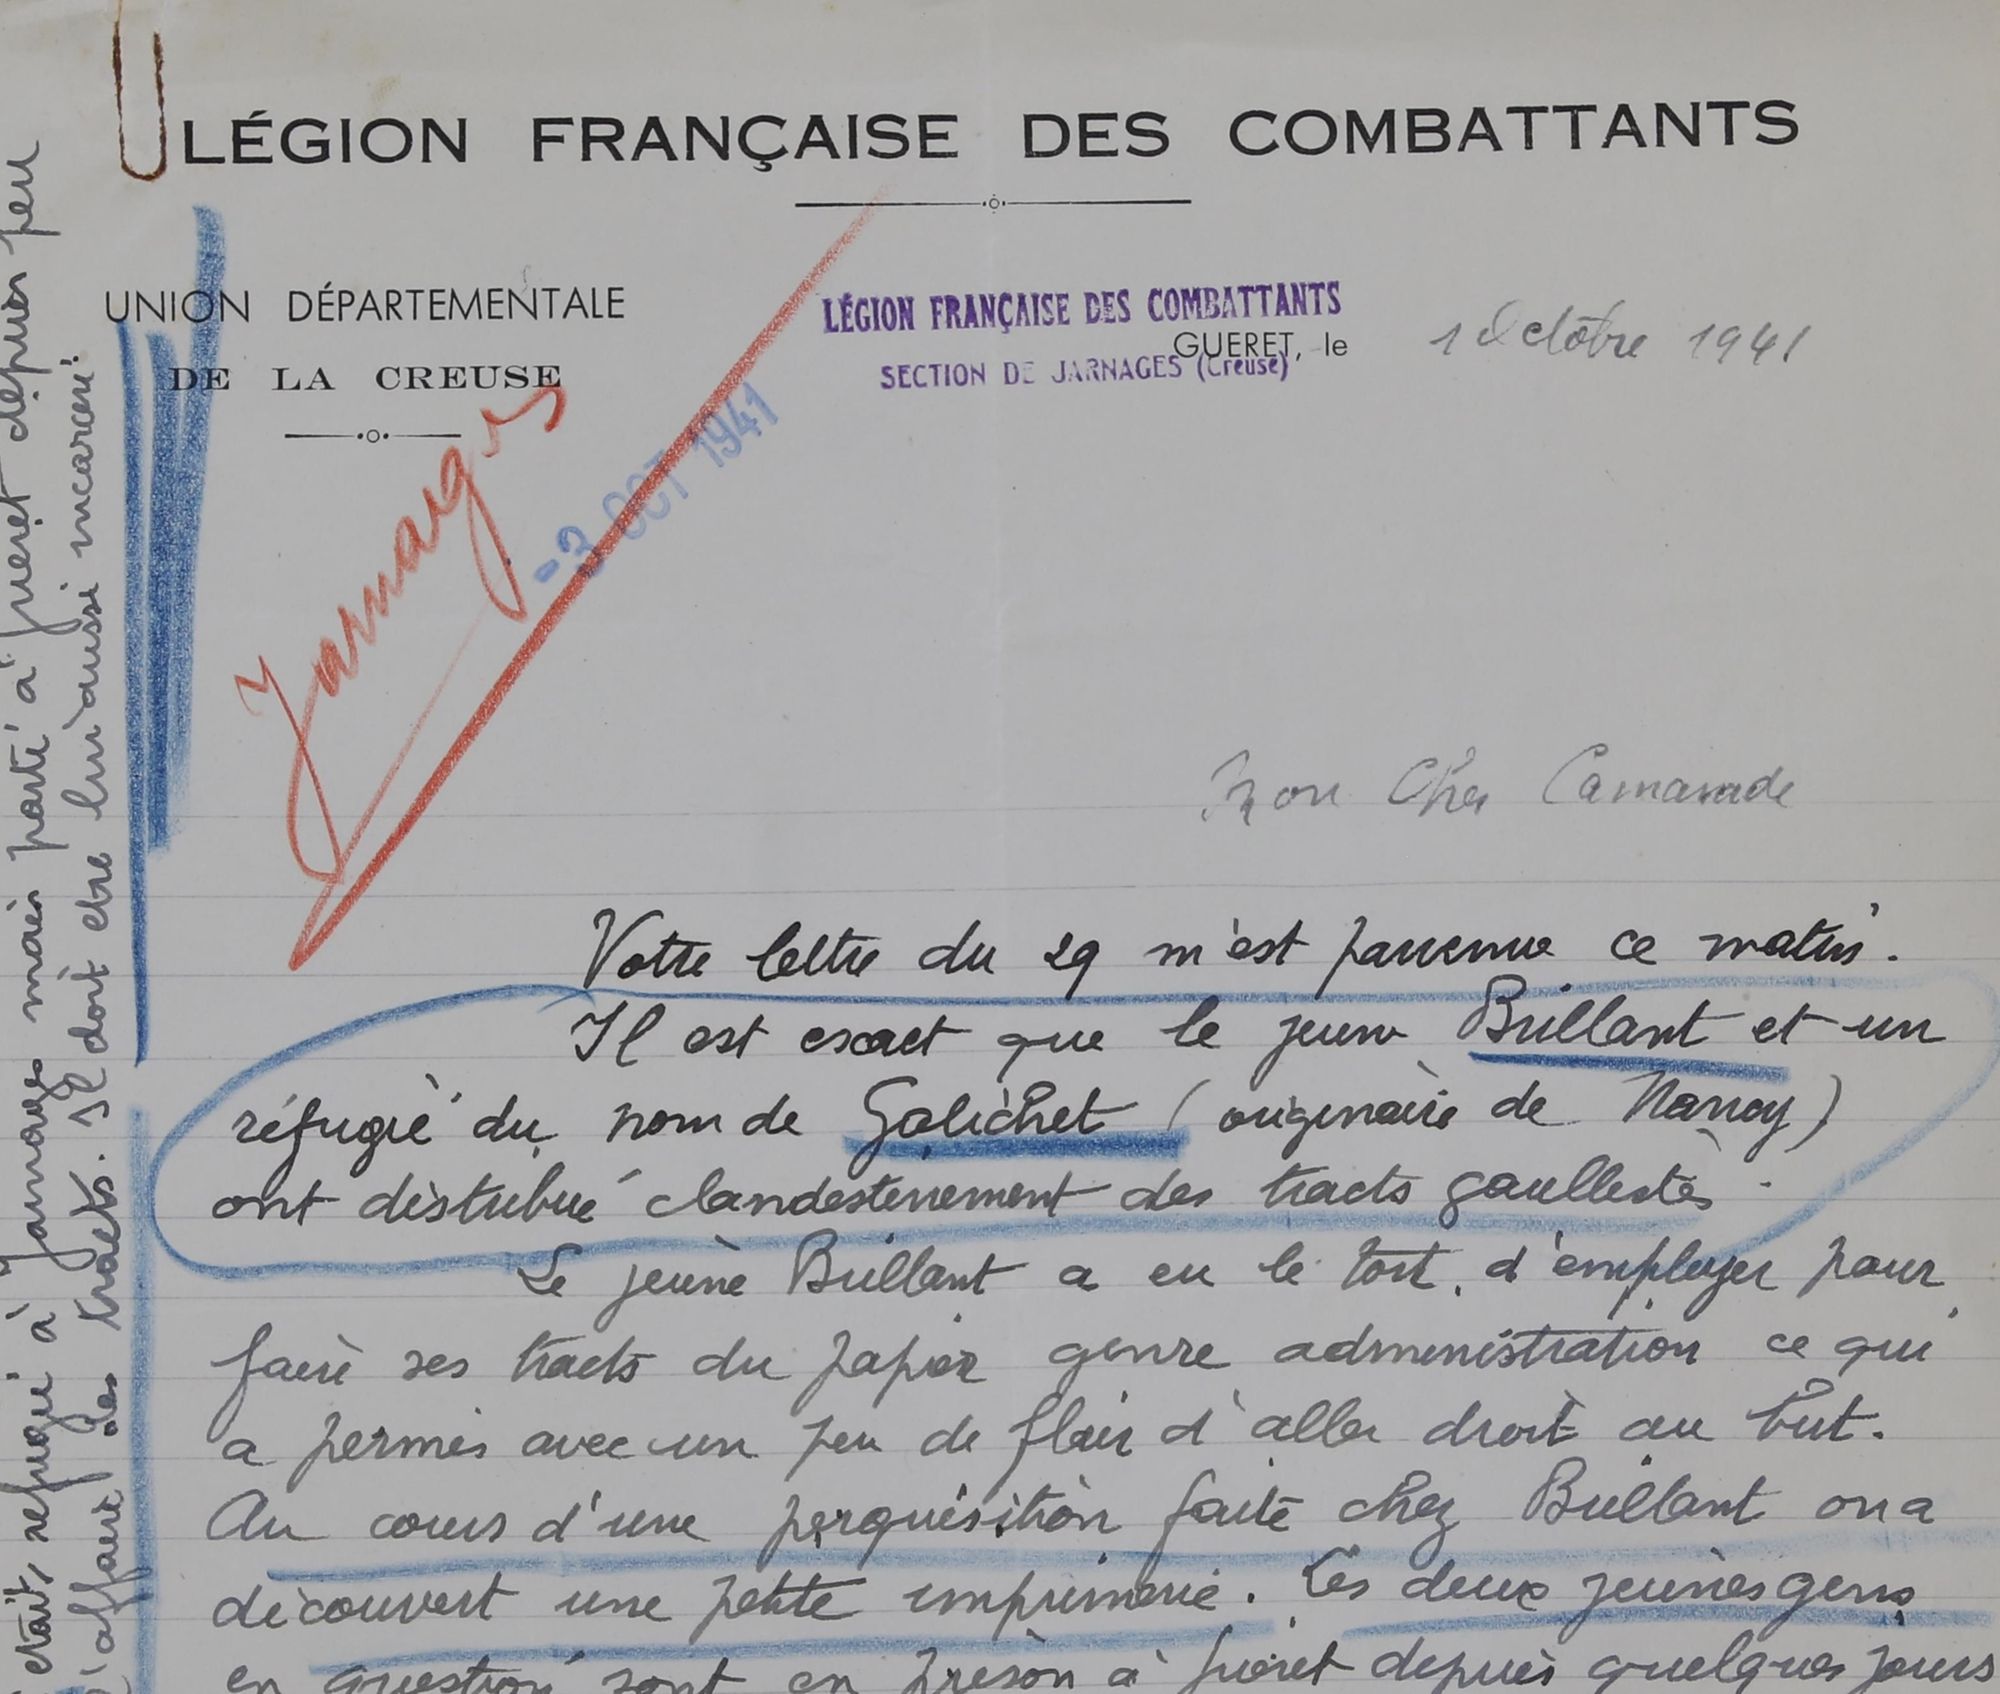 LÉGION FRANÇAISE DES COMBATTANTS
UNION DÉPARTEMENTALE
DE LA CREUSE
LÉGION FRANÇAISE DES COMBATTANTS
GUERET, le 1 Octobre 1941
SECTION DE JARNAGES (Creuse)
Jarnages
-3 OCT 1941
Mon Cher Camarade
Votre lettre du 29 m'est parvenue ce matin.
Il est exact que le jeune Brillant et un
réfugié du nom de Galichet (originaire de Nancy)
ont distribué clandestinement des tracts gaullistes.
Le jeune Brillant a eu le tort d'employer pour
faire ses tracts du papier genre administration ce qui
a permis avec un peu de flair d'aller droit au but.
Au cours d'une perquisition faite chez Brillant on a
découvert une petite imprimerie. Les deux jeunes gens
en question sont en prison à Guéret depuis quelques jours
était refugié à Jarnages mais parti à Gueret depuis peu
l'affaire des tracts. Il doit etre lui aussi incarceré.